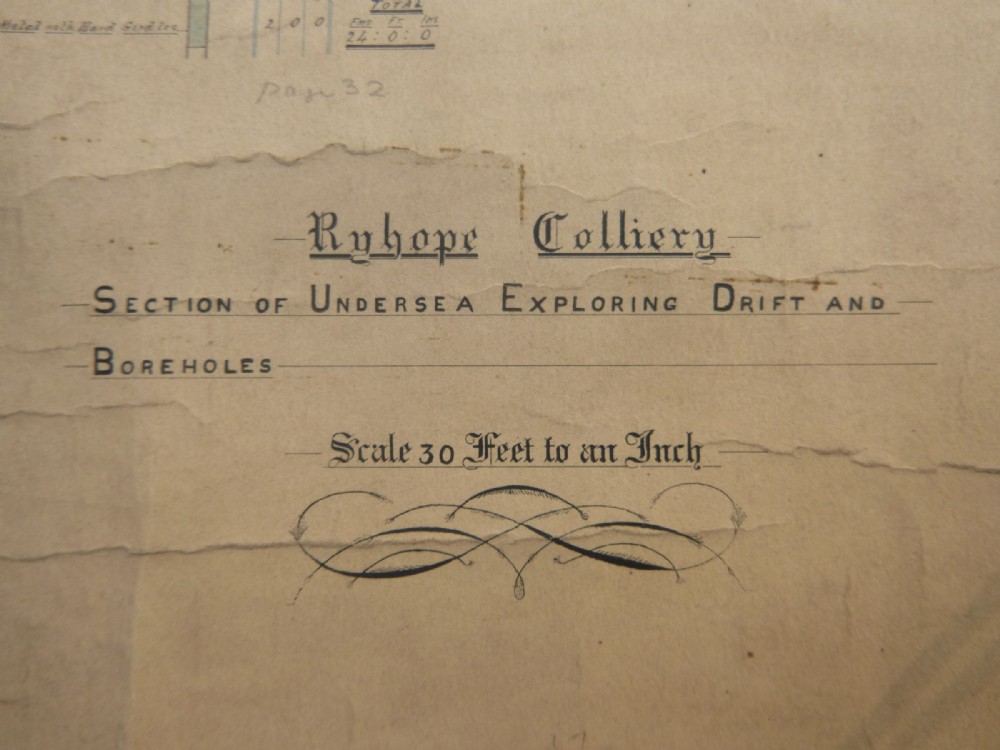 Total
Metal with Hard Girdles 2 0 0 Fms Ft In
24 : 0 : 0
page 32
Ryhope Colliery
Section of Undersea Exploring Drift and
Boreholes
Scale 30 Feet to an Inch